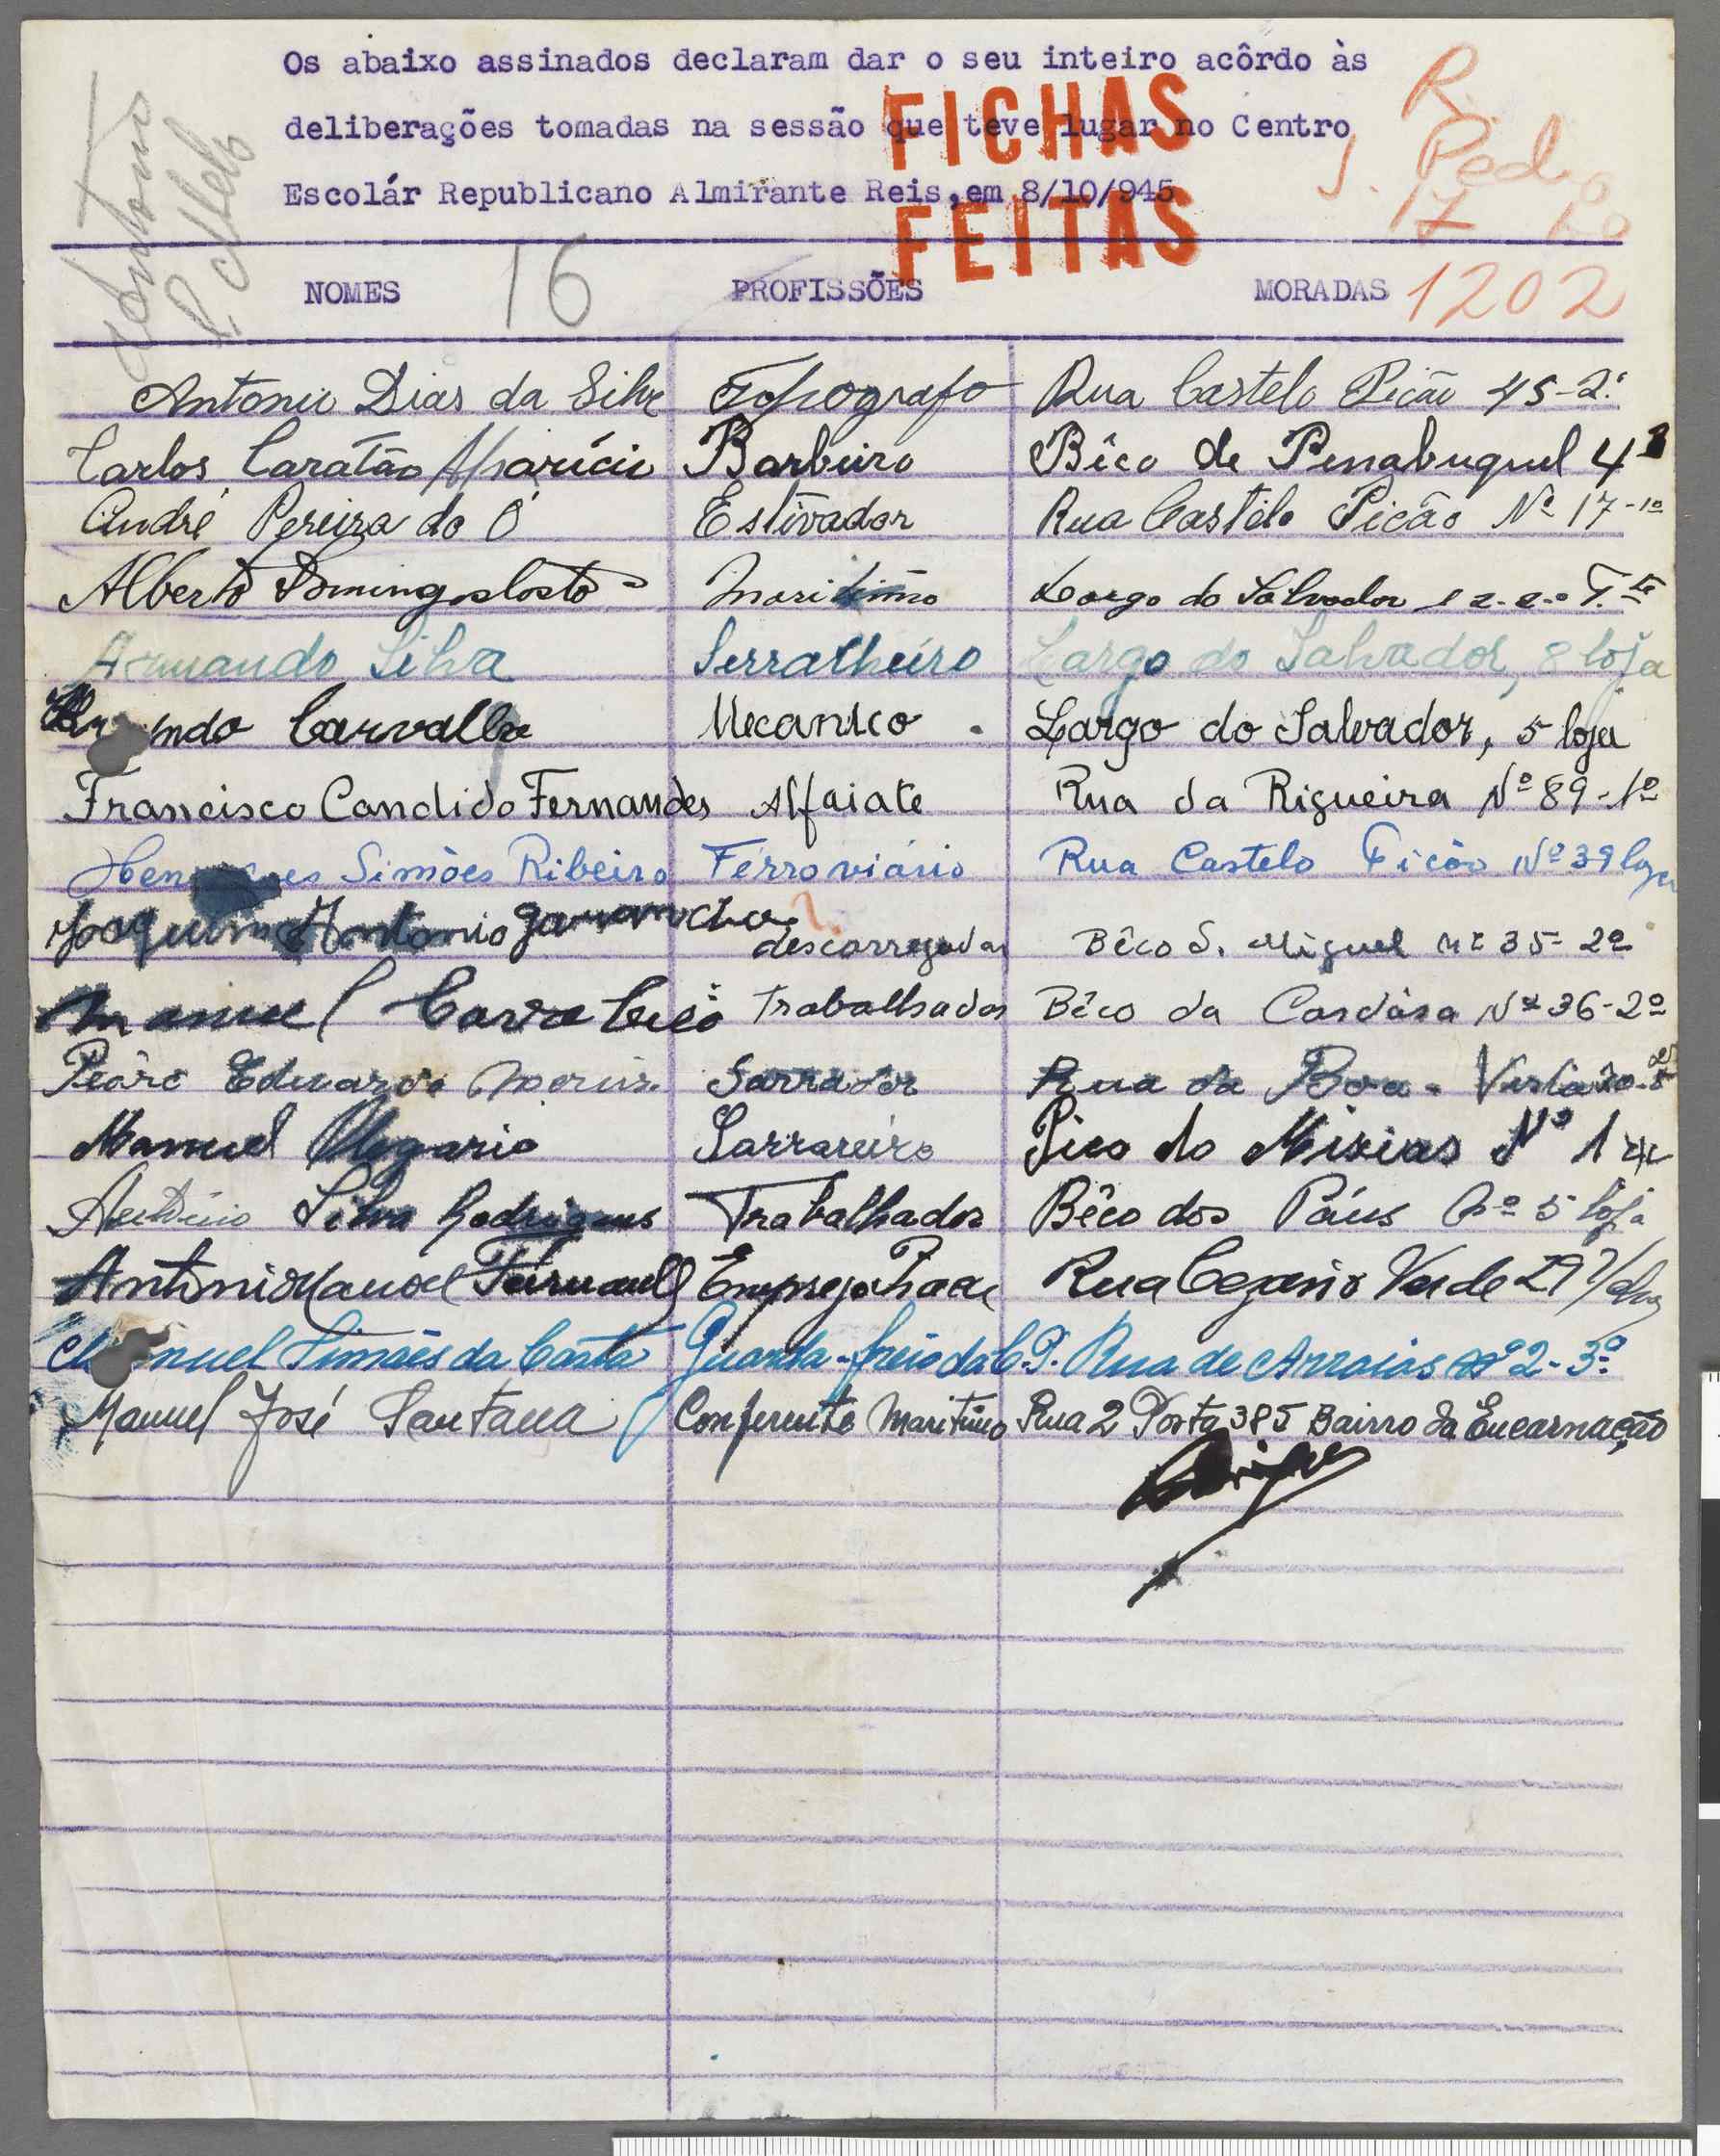 Os abaixo assinados declaram dar o seu inteiro acôrdo às
deliberações tomadas na sessão que teve lugar no Centro
Escolár Republicano Almirante Reis, em 8/10/945
FICHAS
FEITAS
Antonio
P. Melo
R.
17
1202
16
NOMES PROFISSÕES MORADAS
Antonio Dias da Silva Tipografo Rua Castelo Picão 45-2º
Carlos Caratão Aparicio Barbeiro Bêco de Penabuquel 4
André Pereira do Ó Estivador Rua Castelo Picão Nº 17-1º
Alberto Domingos Costa Maritimo Largo do Salvador
Armando Silva Serralheiro Largo do Salvador, 8 loja
Carvalho Mecanico Largo do Salvador, 5 loja
Francisco Candido Fernandes Alfaiate Rua da Rigueira Nº 89-1º
Simões Ribeiro Ferroviário Rua Castelo Picão Nº 39 loja
Joaquim Antonio descarregador Bêco S. Miguel nº 35-2º
Manuel Trabalhador Bêco da Cardósa Nº 36-2º
Pedro Eduardo Sarrador Rua da Boa-Vista
Manuel Olegario Nº 1
António Silva Rodrigues Trabalhador Bêco dos Páus Nº 5 loja
Antonio Manoel Rua Cezario Verde
Manuel Simões da Costa Guarda-freio da C.P. Rua de Arroios nº 2-3º
Manuel José Santana Conferente Maritimo Rua 2 Porta 385 Bairro da Encarnação